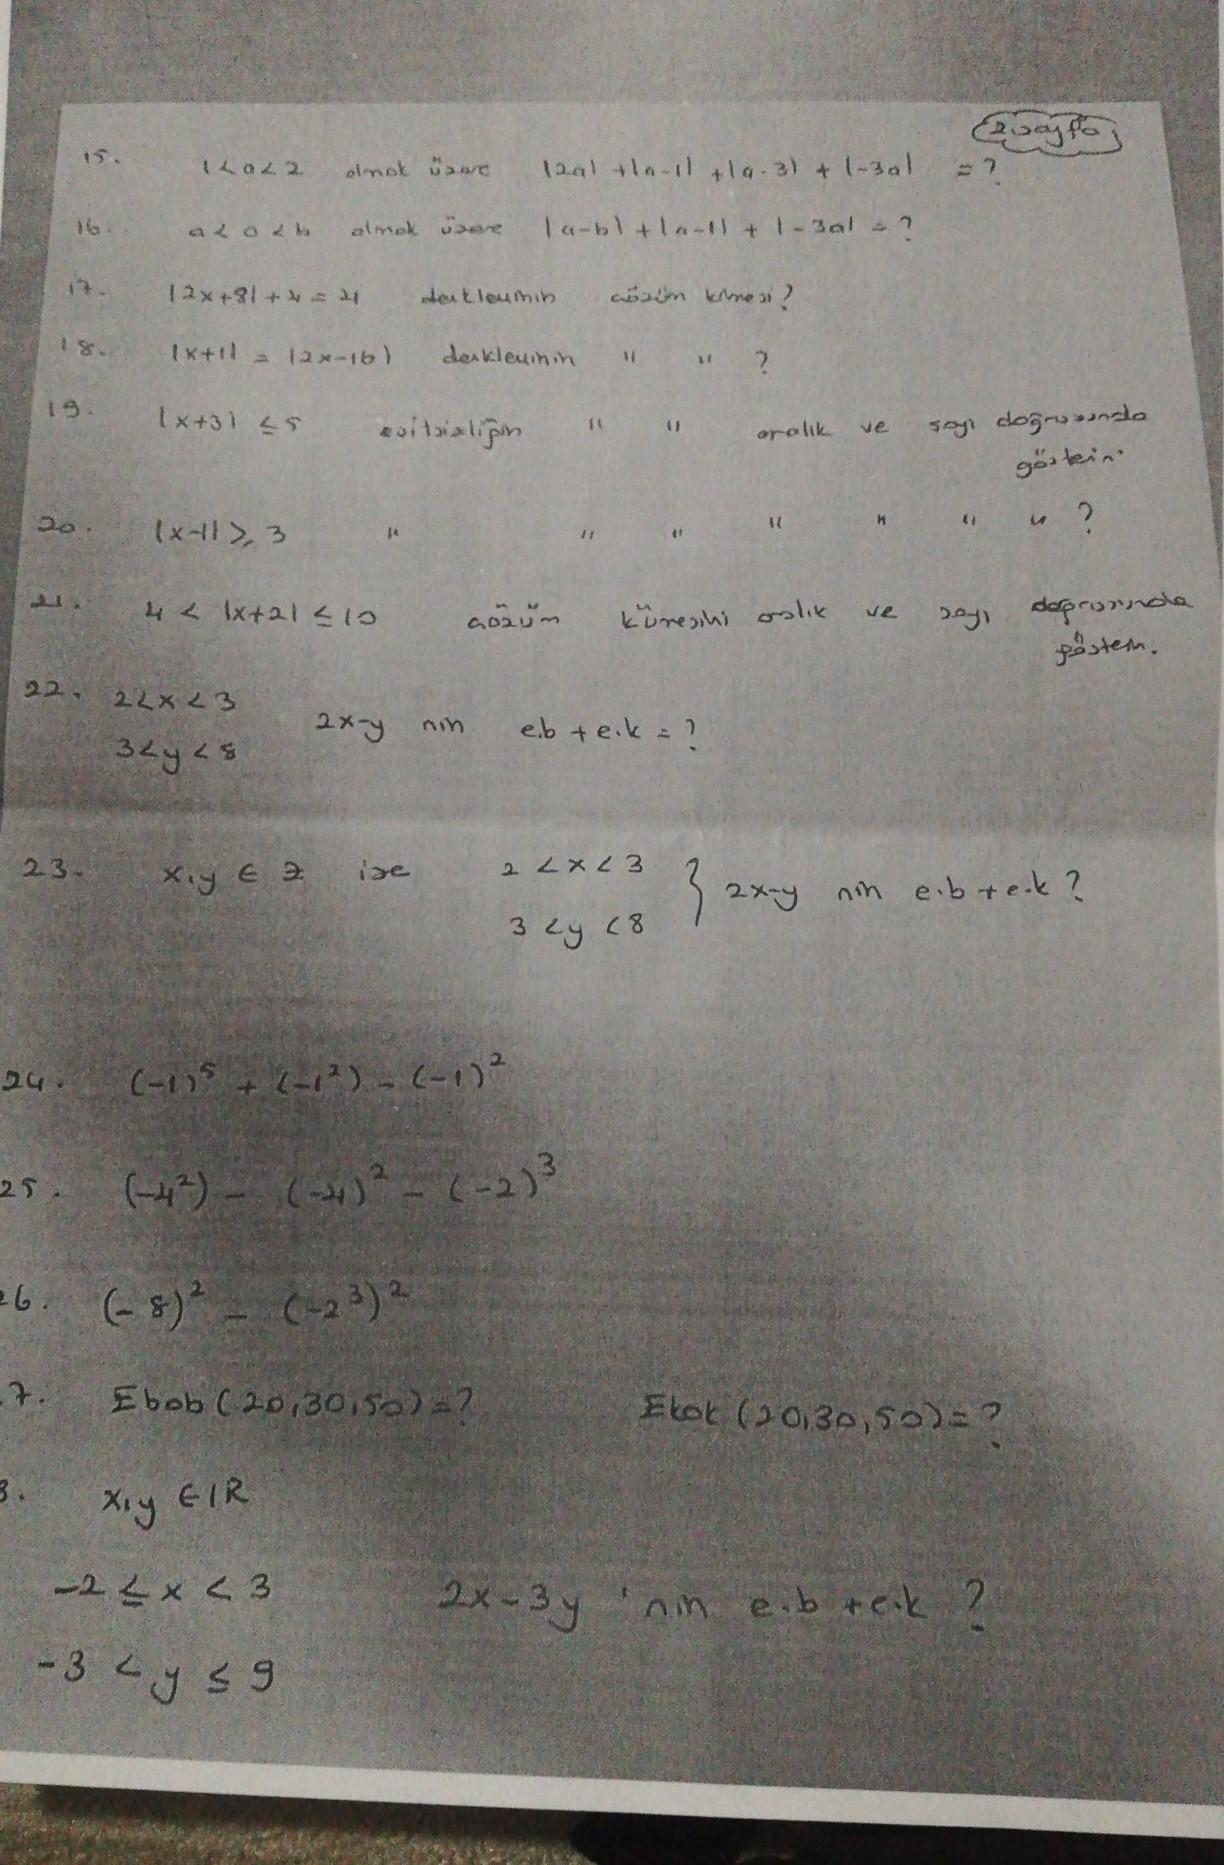 2.sayfa
15. 1<a<2 olmak üzere |2a| + |a-1| + |a-3| + |-3a| = ?
16. a<0<b olmak üzere |a-b| + |a-1| + |-3a| = ?
17. |2x+8| + 4 = 4 denkleminin çözüm kümesi?
18. |x+1| = |2x-16| denkleminin " " ?
19. |x+3| ≤ 5 eşitsizliğin " " aralık ve sayı doğrusunda
gösterin.
20. |x-1| ≥ 3 " " " " " " " ?
21. 4 < |x+2| ≤ 10 çözüm kümesini aralık ve sayı doğrusunda
göstern.
22. 2<x<3
2x-y nin e.b + e.k = ?
3<y<8
23. x,y ∈ Z ise 2<x<3
} 2x-y nin e.b + e.k ?
3<y<8
24. (-1)⁵ + (-1²) - (-1)²
25. (-4²) - (-4)² - (-2)³
26. (-8)² - (-2³)²
7. Ebob (20,30,50) = ? Ekok (20,30,50) = ?
8. x,y ∈ IR
-2 ≤ x < 3 2x-3y 'nin e.b + e.k ?
-3 < y ≤ 9